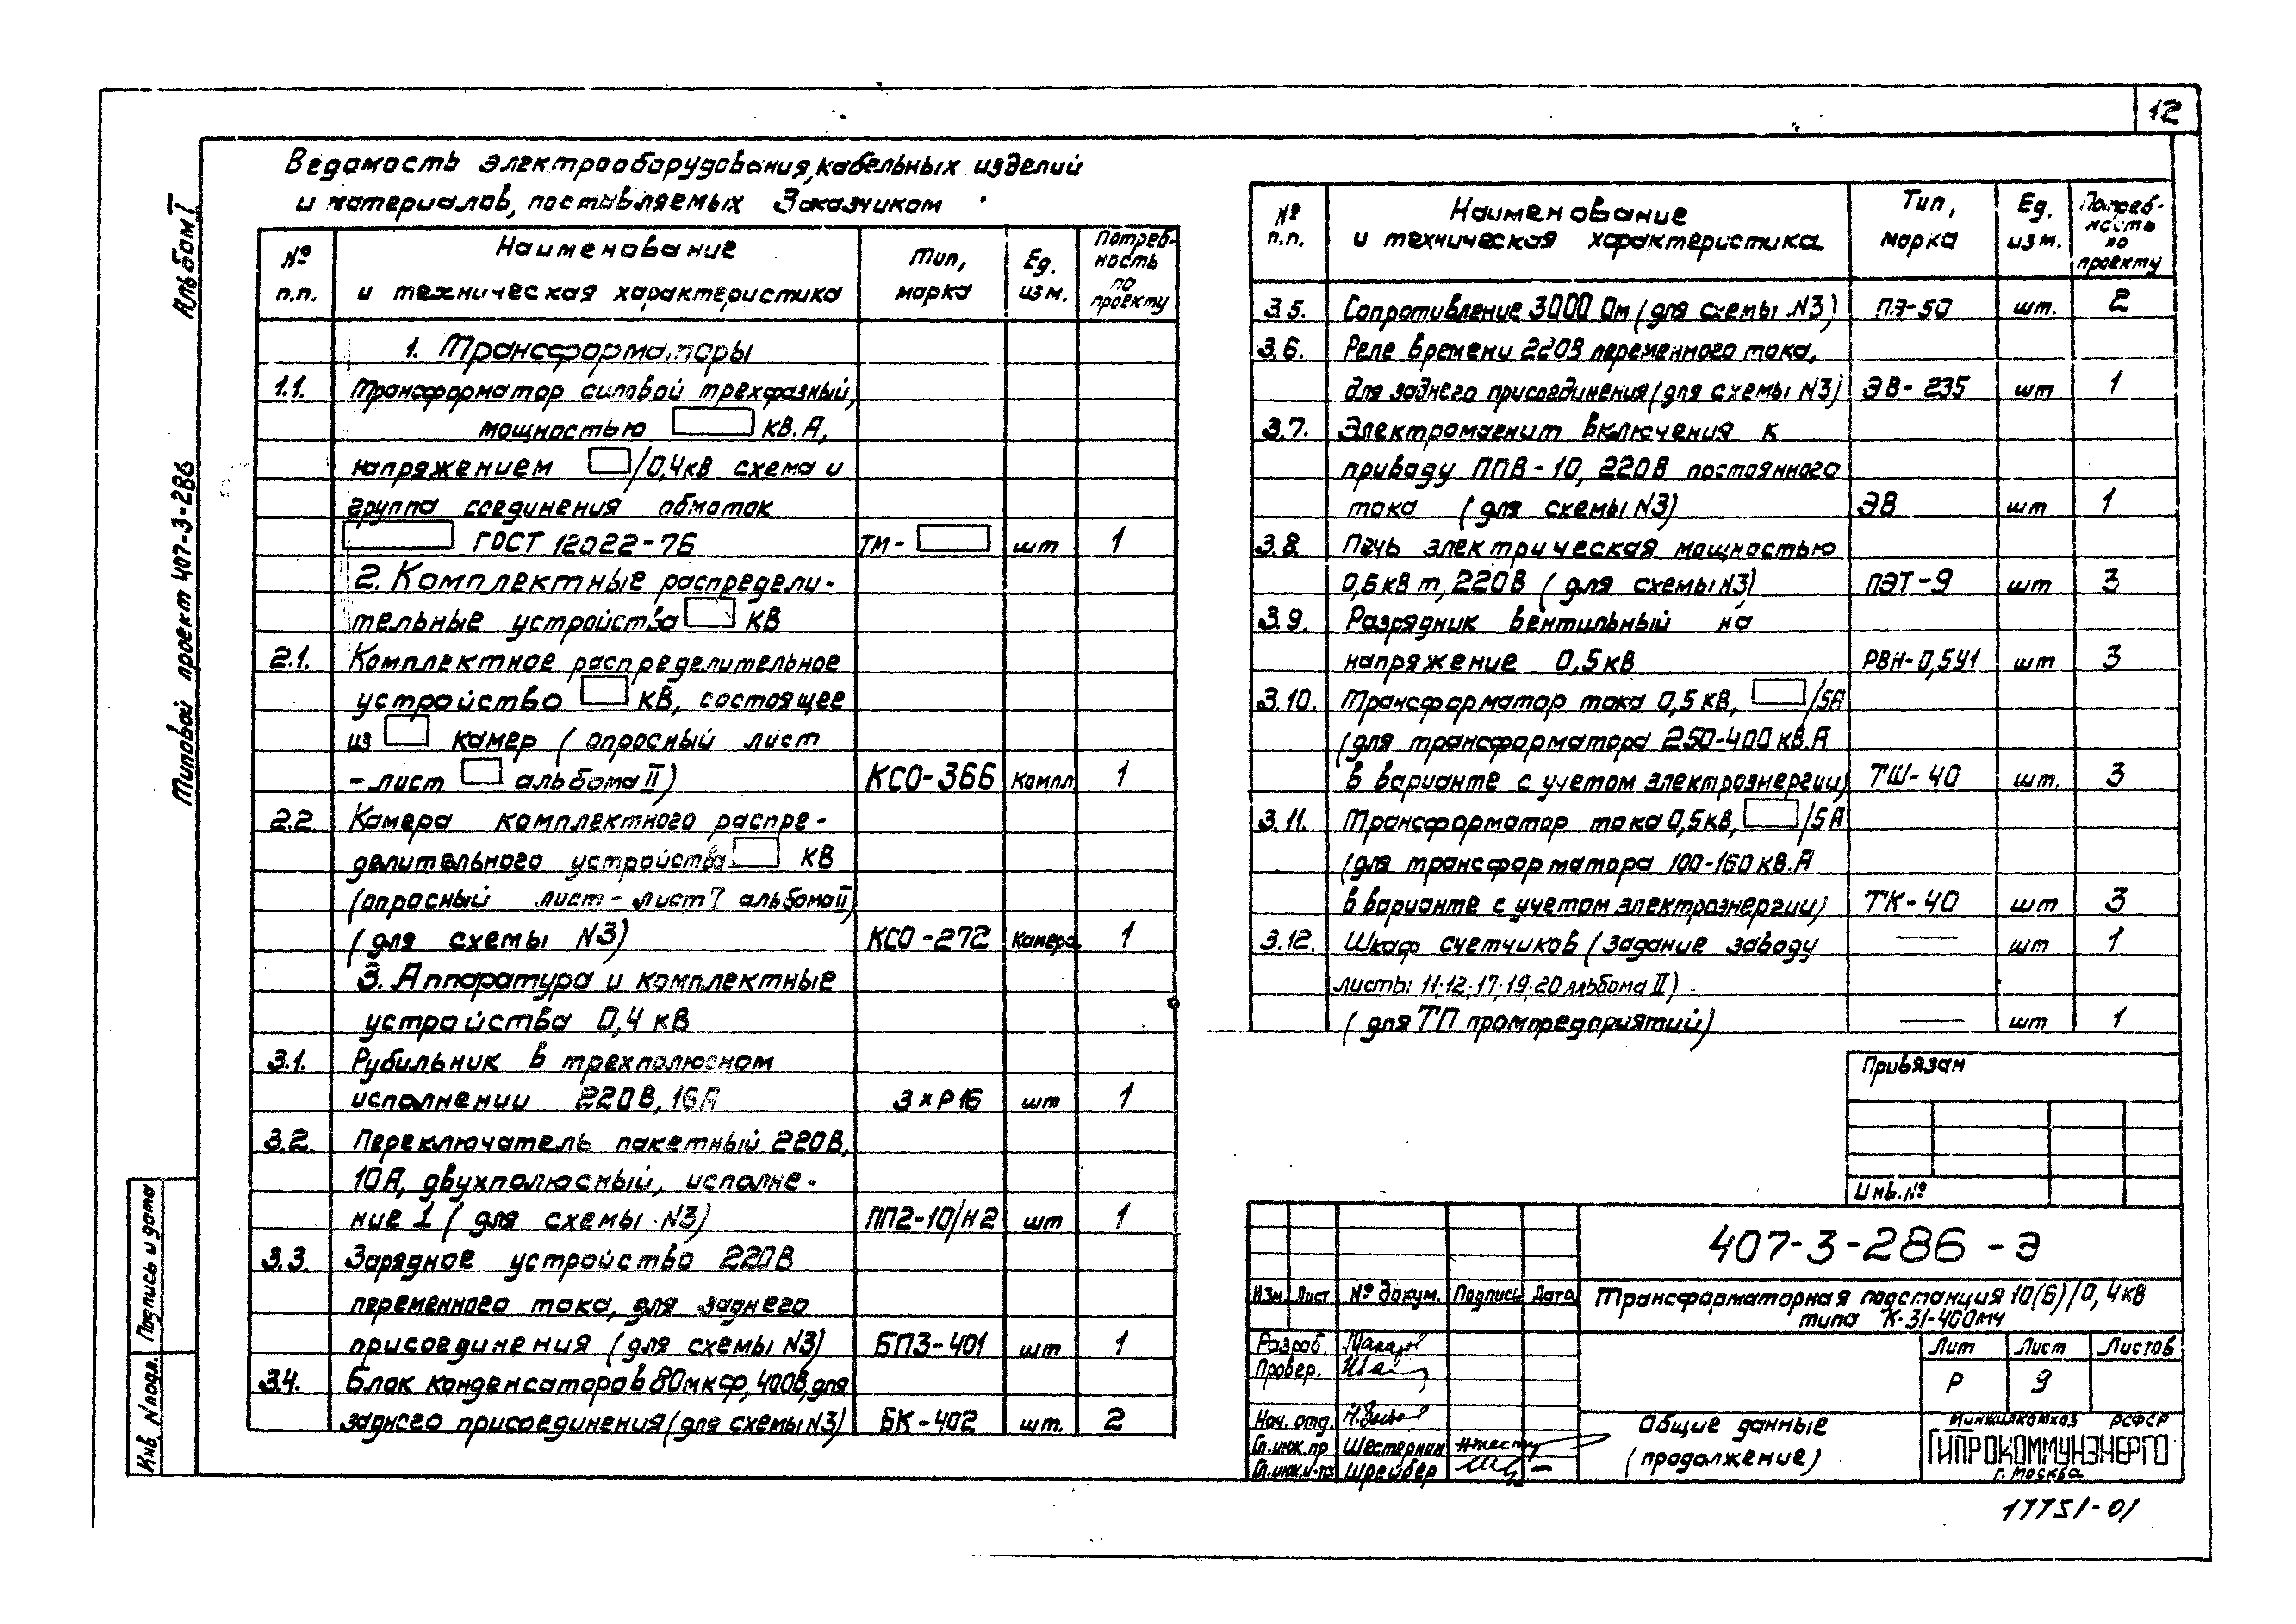 12
Альбом I
Типовой проект 407-3-286
Ведомость электрооборудования, кабельных изделий
и материалов, поставляемых Заказчиком
№ п.п. | Наименование и техническая характеристика | Тип, марка | Ед. изм. | Потреб-ность по проекту
1. Трансформаторы
1.1. Трансформатор силовой трехфазный,
мощностью кВ.А,
напряжением /0,4кв схема и
группа соединения обмоток
ГОСТ 12022-76 | ТМ- | шт | 1
2. Комплектные распредели-
тельные устройства кВ
2.1. Комплектное распределительное
устройство кВ, состоящее
из камер (опросный лист
- лист альбома II) | КСО-366 | Компл | 1
2.2. Камера комплектного распре-
делительного устройства кВ
(опросный лист - лист 7 альбома II)
(для схемы N3) | КСО-272 | Камера | 1
3. Аппаратура и комплектные
устройства 0,4 кВ
3.1. Рубильник в трехполюсном
исполнении 220В, 16А | 3×Р16 | шт | 1
3.2. Переключатель пакетный 220В,
10А, двухполюсный, исполне-
ние 1 (для схемы N3) | ПП2-10/Н2 | шт | 1
3.3. Зарядное устройство 220В
переменного тока, для заднего
присоединения (для схемы N3) | БПЗ-401 | шт | 1
3.4. Блок конденсаторов 80мкф, 400В, для
заднего присоединения (для схемы N3) | БК-402 | шт. | 2
№ п.п. | Наименование и техническая характеристика | Тип, марка | Ед. изм. | Потреб-ность по проекту
3.5. Сопротивление 3000 Ом (для схемы N3) | ПЭ-50 | шт. | 2
3.6. Реле времени 220В переменного тока,
для заднего присоединения (для схемы N3) | ЭВ-235 | шт | 1
3.7. Электромагнит включения к
приводу ППВ-10, 220В постоянного
тока (для схемы N3) | ЭВ | шт | 1
3.8 Печь электрическая мощностью
0,6кВт, 220В (для схемы N3) | ПЭТ-9 | шт | 3
3.9. Разрядник вентильный на
напряжение 0,5кВ | РВН-0,5У1 | шт | 3
3.10. Трансформатор тока 0,5кВ, /5А
(для трансформатора 250-400кВ.А
в варианте с учетом электроэнергии) | ТШ-40 | шт. | 3
3.11. Трансформатор тока 0,5кВ, /5А
(для трансформатора 100-160кВ.А
в варианте с учетом электроэнергии) | ТК-40 | шт | 3
3.12. Шкаф счетчиков (задание заводу | — | шт | 1
листы 11; 12; 17; 19; 20 альбома II)
(для ТП промпредприятий) | — | шт | 1
Привязан
Инв. №
407-3-286-Э
Изм. Лист № докум. Подпись Дата
Трансформаторная подстанция 10(6)/0,4кВ
типа К-31-400м4
Разраб.
Провер.
Нач. отд.
Гл.инж.пр Шестернин
Гл.инж.и-та Шрейбер
Лит Лист Листов
Р 9
Общие данные
(продолжение)
Минжилкомхоз РСФСР
ГИПРОКОММУНЭНЕРГО
г. Москва
17751-01
Подпись и дата
Инв. N подл.